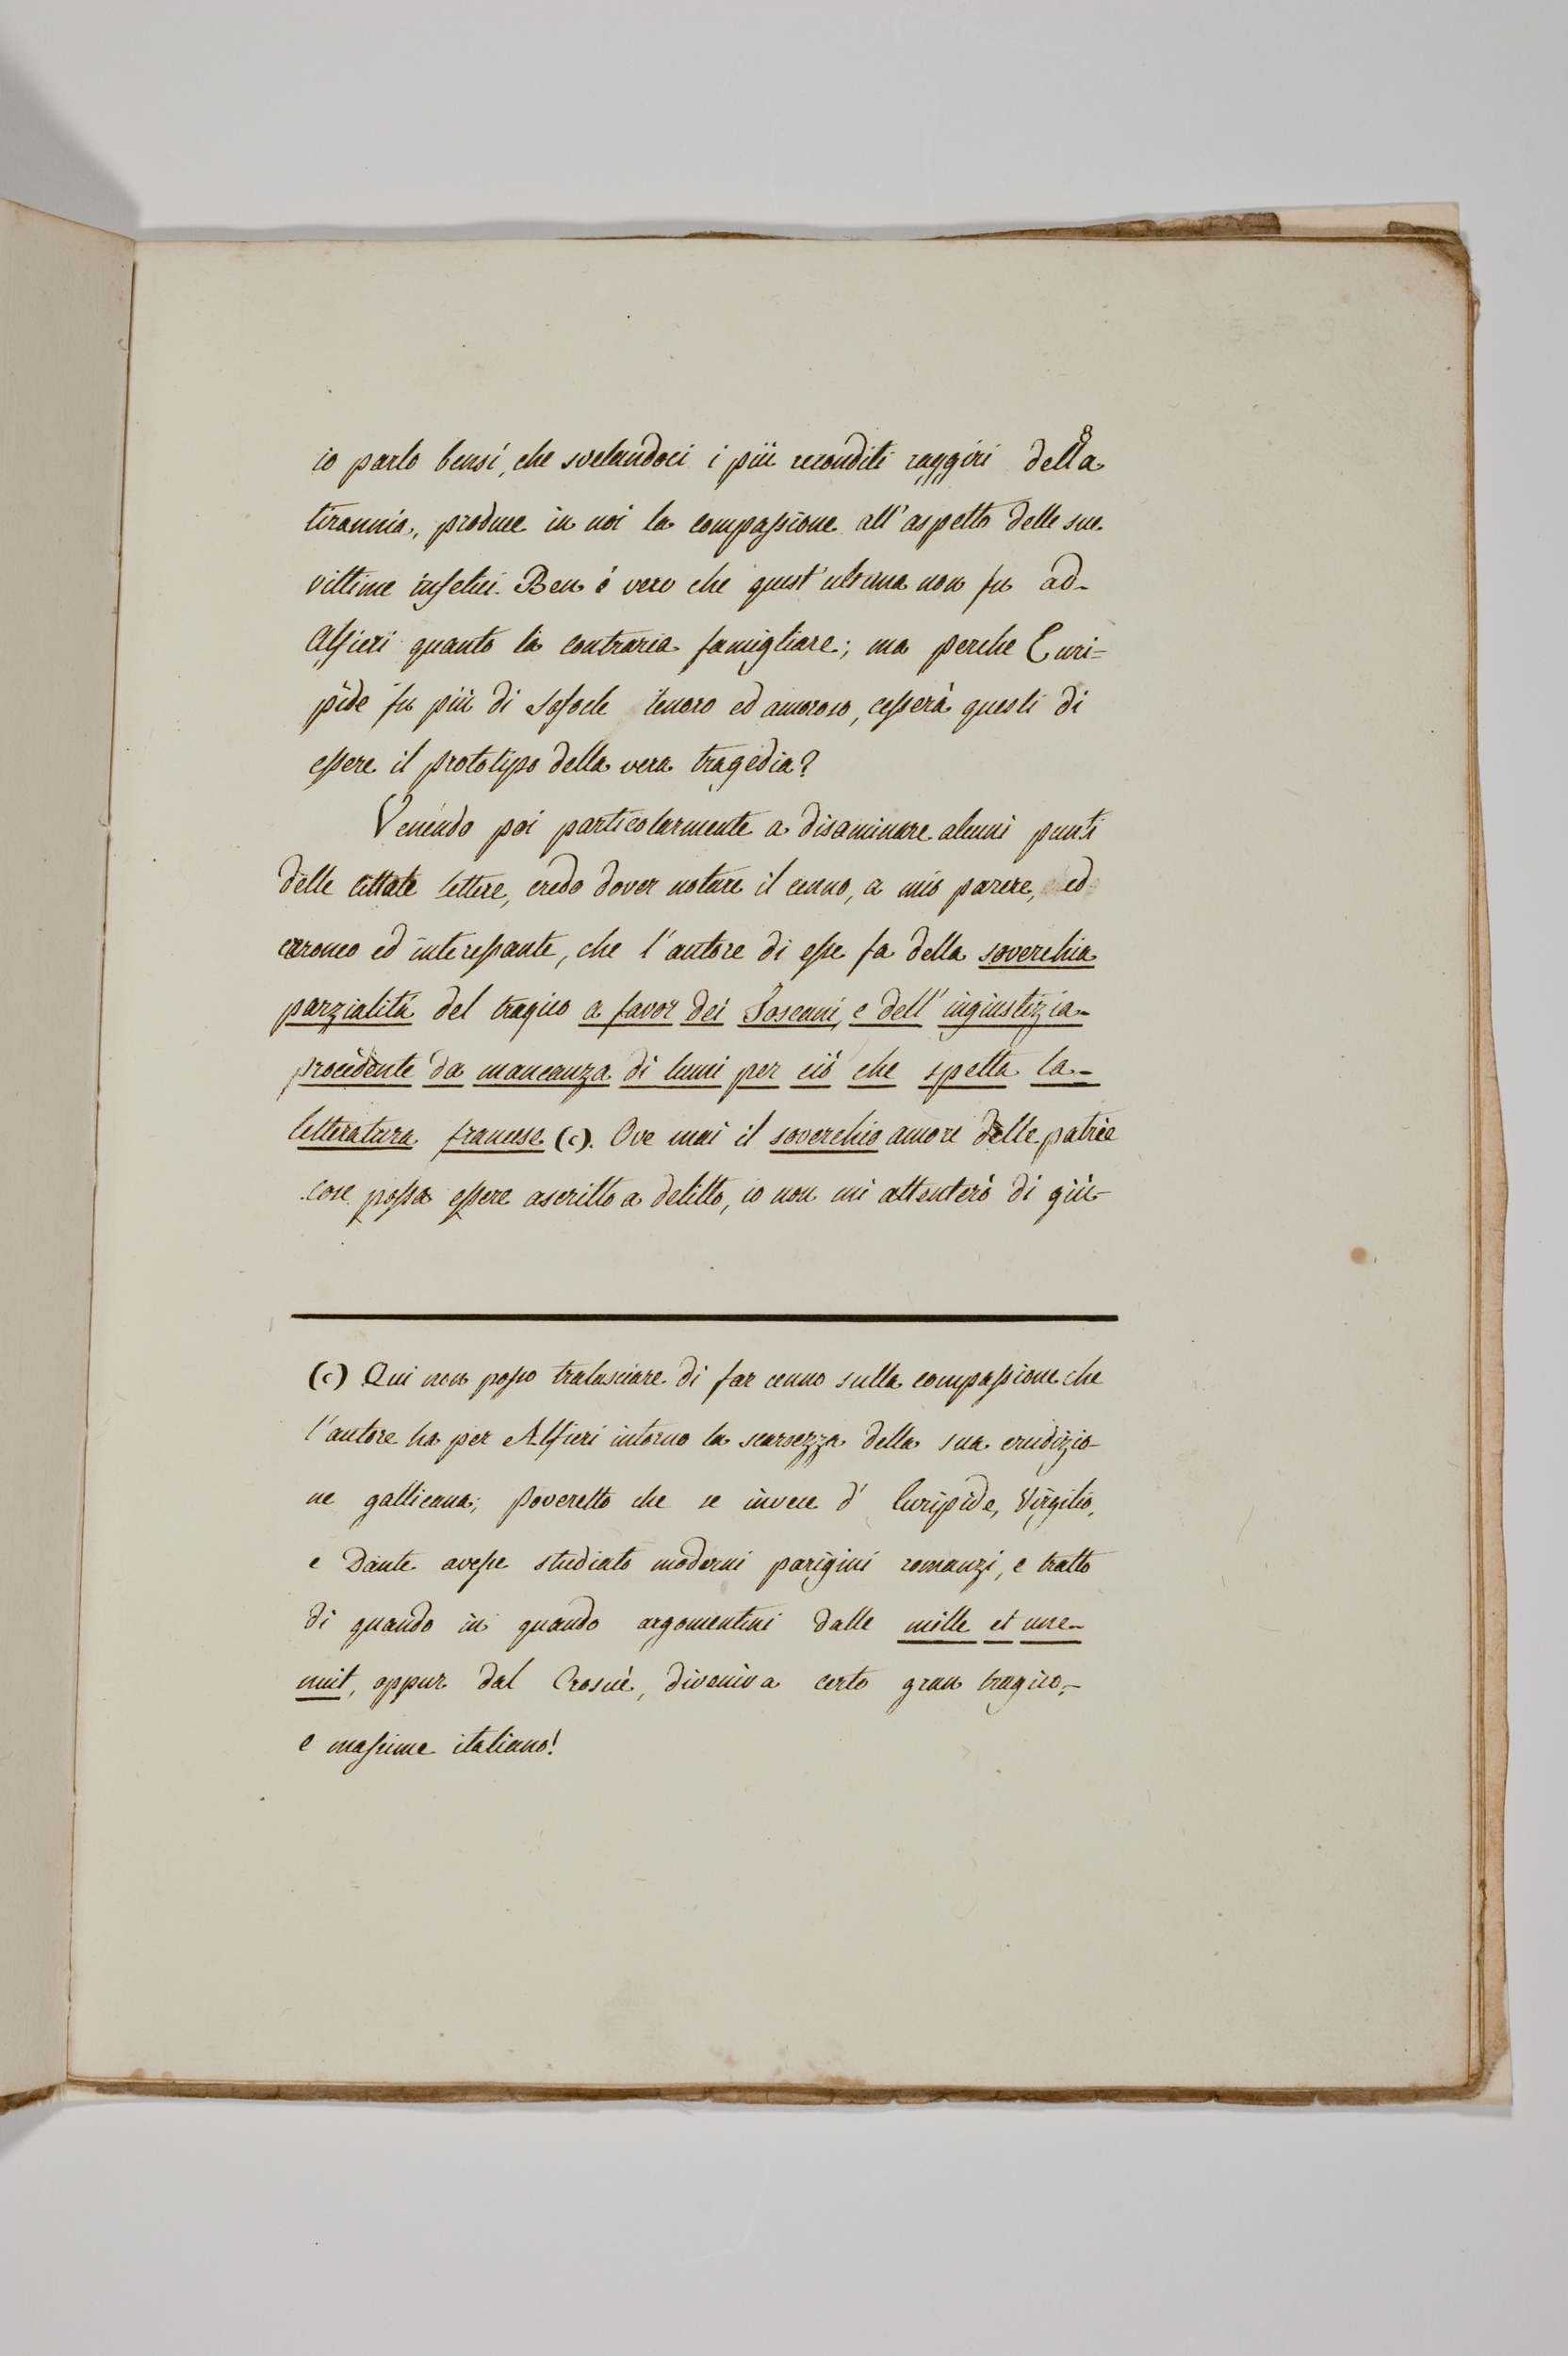 8
io parlo bensí, che svelandoci i più reconditi raggiri della
tirannia, produce in noi la compassione all'aspetto delle sue
vittime infelici. Ben é vero che quest'ultima non fu ad-
Alfieri quanto la contraria famigliare; ma perche Euri=
pide fu più di Sofocle tenero ed amoroso, cesserà questi di
essere il prototipo della vera tragedia?
Venendo poi particolarmente a disaminare alcuni punti
delle cittate lettere, credo dover notare il cenno, a mio parere, ed
erroneo ed interessante, che l'autore di esse fa della soverchia
parzialità del tragico a favor dei Toscani, e dell'ingiustizia-
procedente da mancanza di lumi per ciò che spetta la-
letteratura francese (c). Ove mai il soverchio amore delle patrie
cose possa essere ascritto a delitto, io non mi attenterò di giu-
(c) Qui non posso tralasciare di far cenno sulla compassione che
l'autore ha per Alfieri intorno la scarsezza della sua erudizio-
ne gallicana; poveretto che se invece d' Euripide, Virgilio,
e Dante avesse studiato moderni parigini romanzi, e tratto
di quando in quando argomentini dalle mille et une-
nuit, oppur dal Crosué, diveniva certo gran tragico,-
e massime italiano!